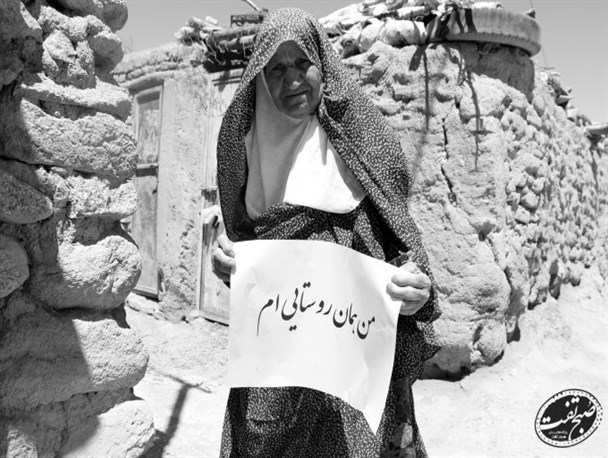 من همان روستایی ام
صبح تفت